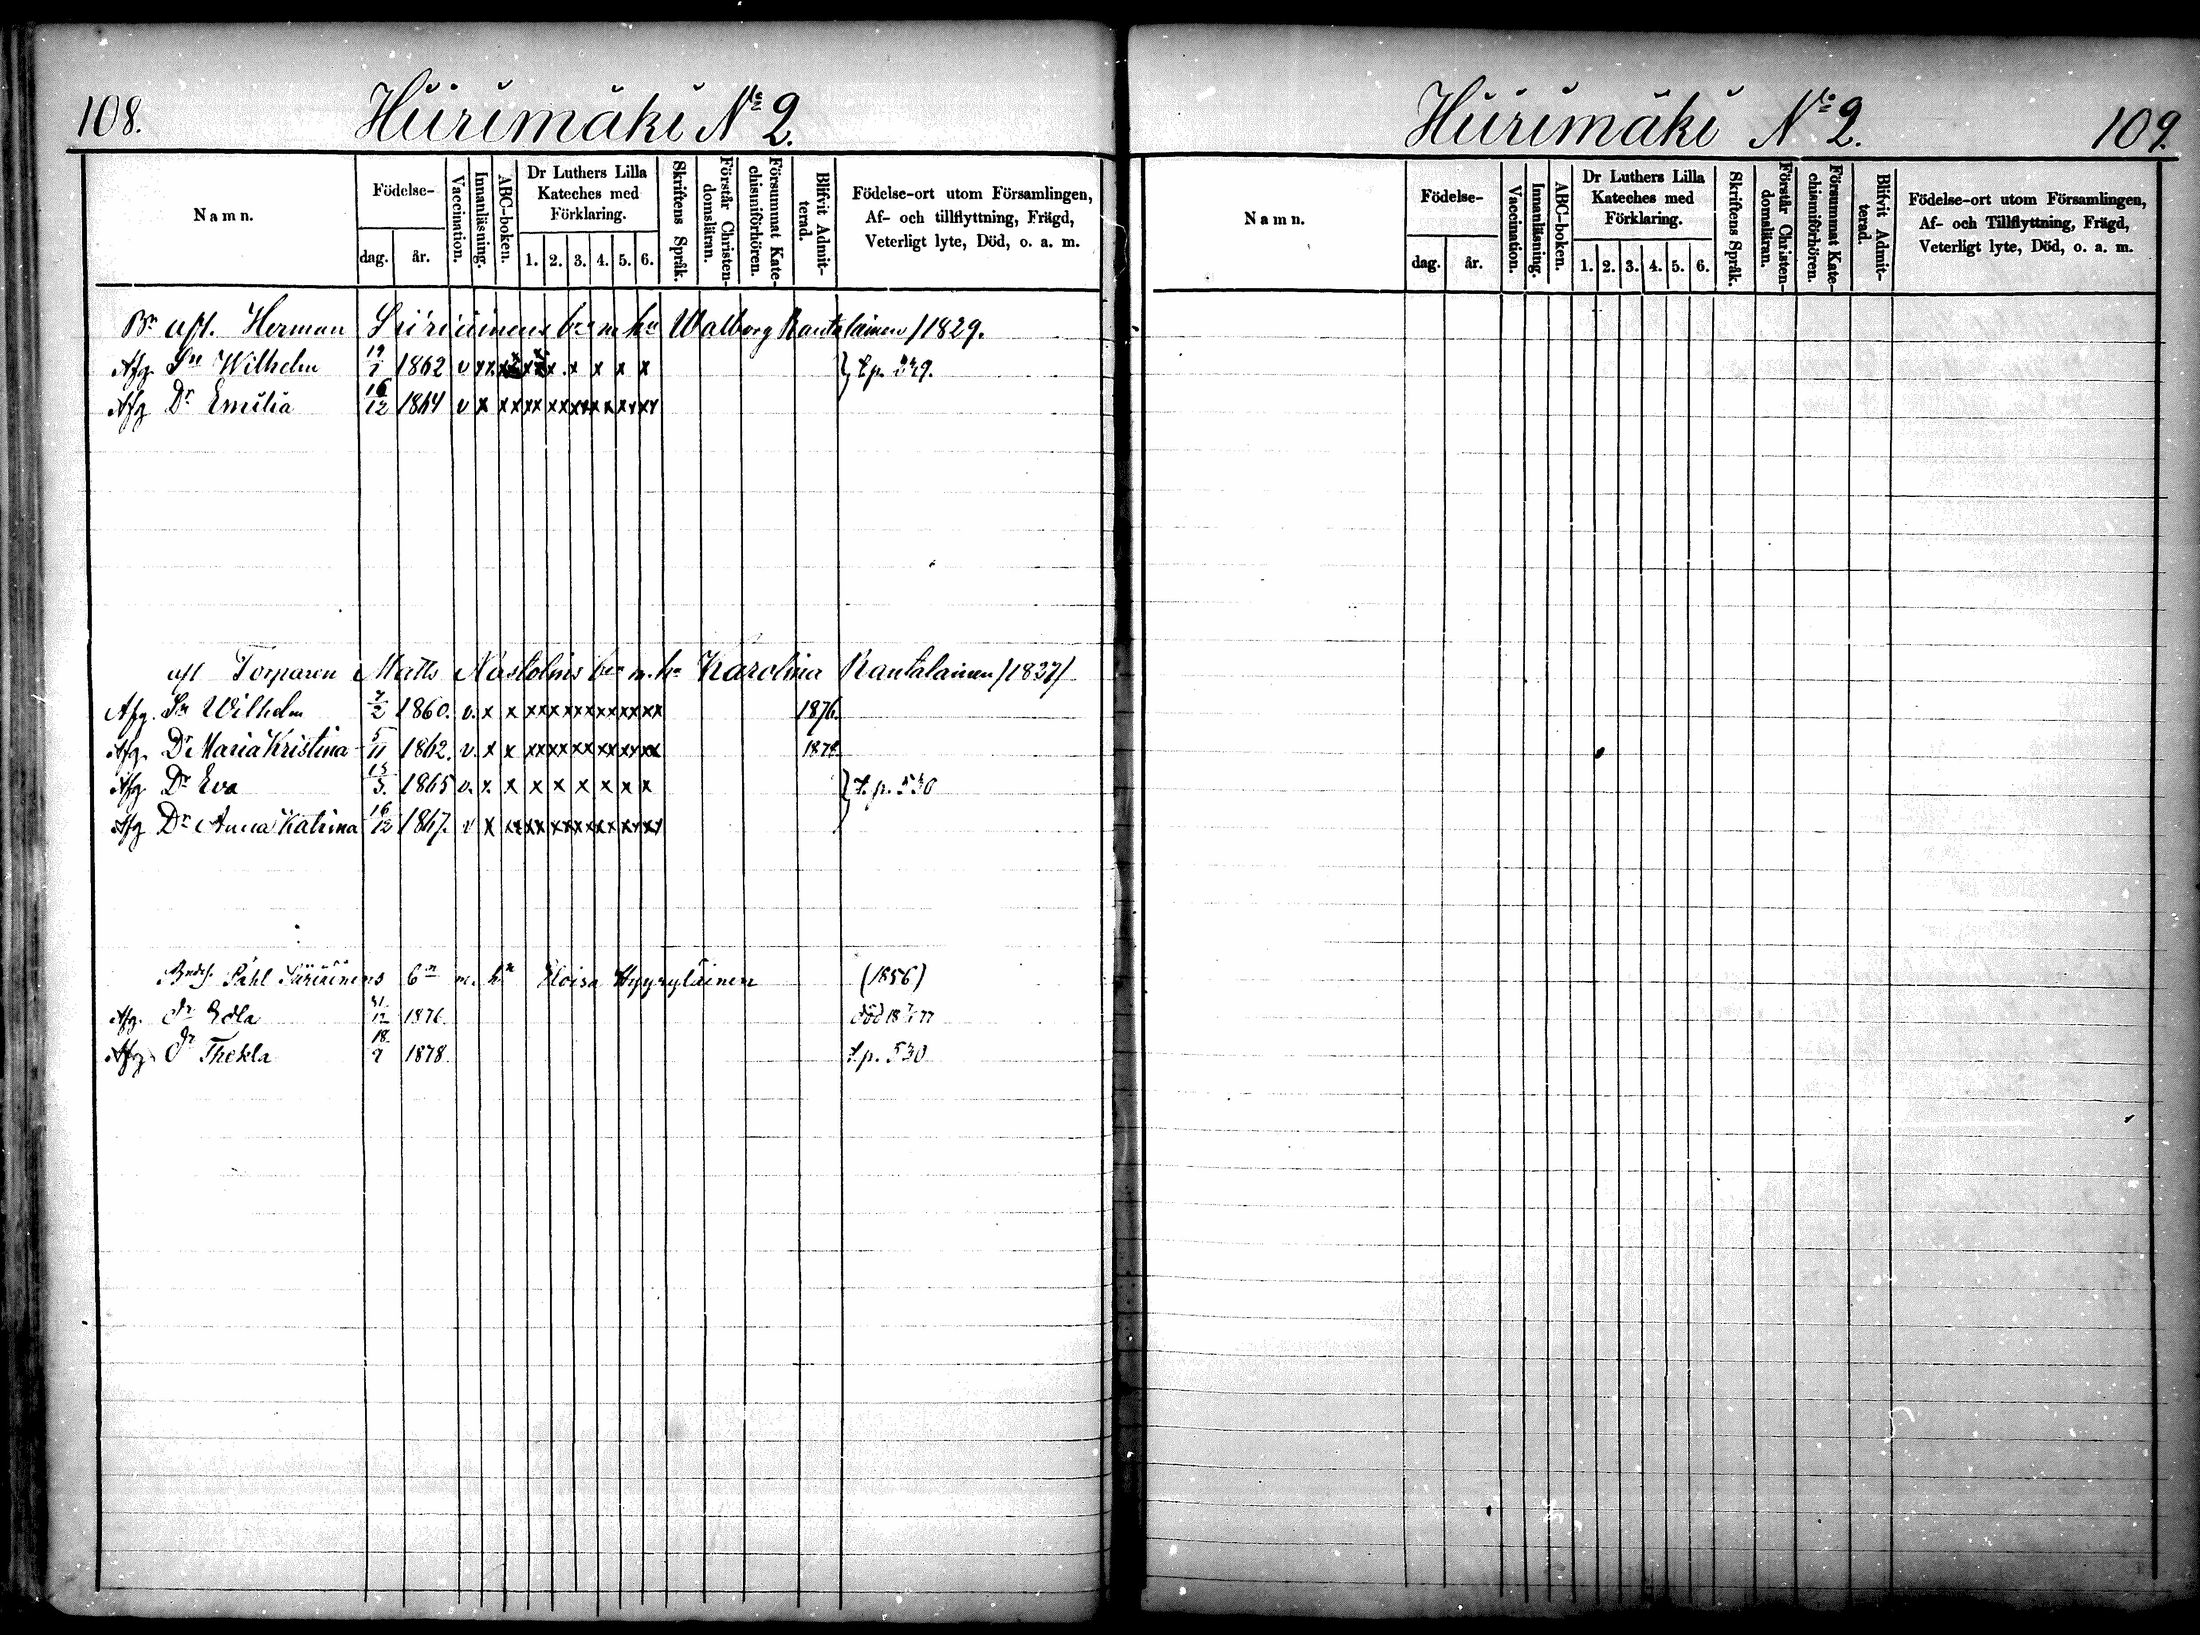 108. Hiirimäki No 2.
Namn.
Födelse-
dag. år.
Vaccination.
Innanläsning.
ABC-boken.
Dr Luthers Lilla
Kateches med
Förklaring.
1. 2. 3. 4. 5. 6.
Skriftens Språk.
Förstår Christen-
domsläran.
Försummat Kate-
chismiförhören.
Blifvit Admit-
terad.
Födelse-ort utom Församlingen,
Af- och tillflyttning, Frägd,
Veterligt lyte, Död, o. a. m.
Bn afl. Herman bn m. hu Walborg Rantalainen /1829.
Afg. Sn Wilhelm 1862 v x x x x x x x x
Afg Dr Emilia 16/12 1864 v x x x x x x x x x x x x x x x
afl Torparen Matts Nastolins bn m. hu Karolina Rantalainen /1837/
Afg. Sn Wilhelm 2/2 1860. v. x x xx xx xx xx xx xx 1876.
Afg. Dr Maria Kristina 5/11 1862. v. x x xx xx xx xx xx xx 1878
Afg Dr Eva 15/3. 1865 v. x. x x x x x x x t. p. 530
Afg Dr Anna Katrina 16/12 1867. v x xx xx xx xx xx xx xx
Påhl bn m. hu Loisa Hyyryläinen (1856)
Afg. dr Edla 31./12 1876. död
Afg. dr Thekla 18./9 1878. t. p. 530
Hiirimäki No 2. 109.
Namn.
Födelse-
dag. år.
Vaccination.
Innanläsning.
ABC-boken.
Dr Luthers Lilla
Kateches med
Förklaring.
1. 2. 3. 4. 5. 6.
Skriftens Språk.
Förstår Christen-
domsläran.
Försummat Kate-
chismiförhören.
Blifvit Admit-
terad.
Födelse-ort utom Församlingen,
Af- och Tillflyttning, Frägd,
Veterligt lyte, Död, o. a. m.